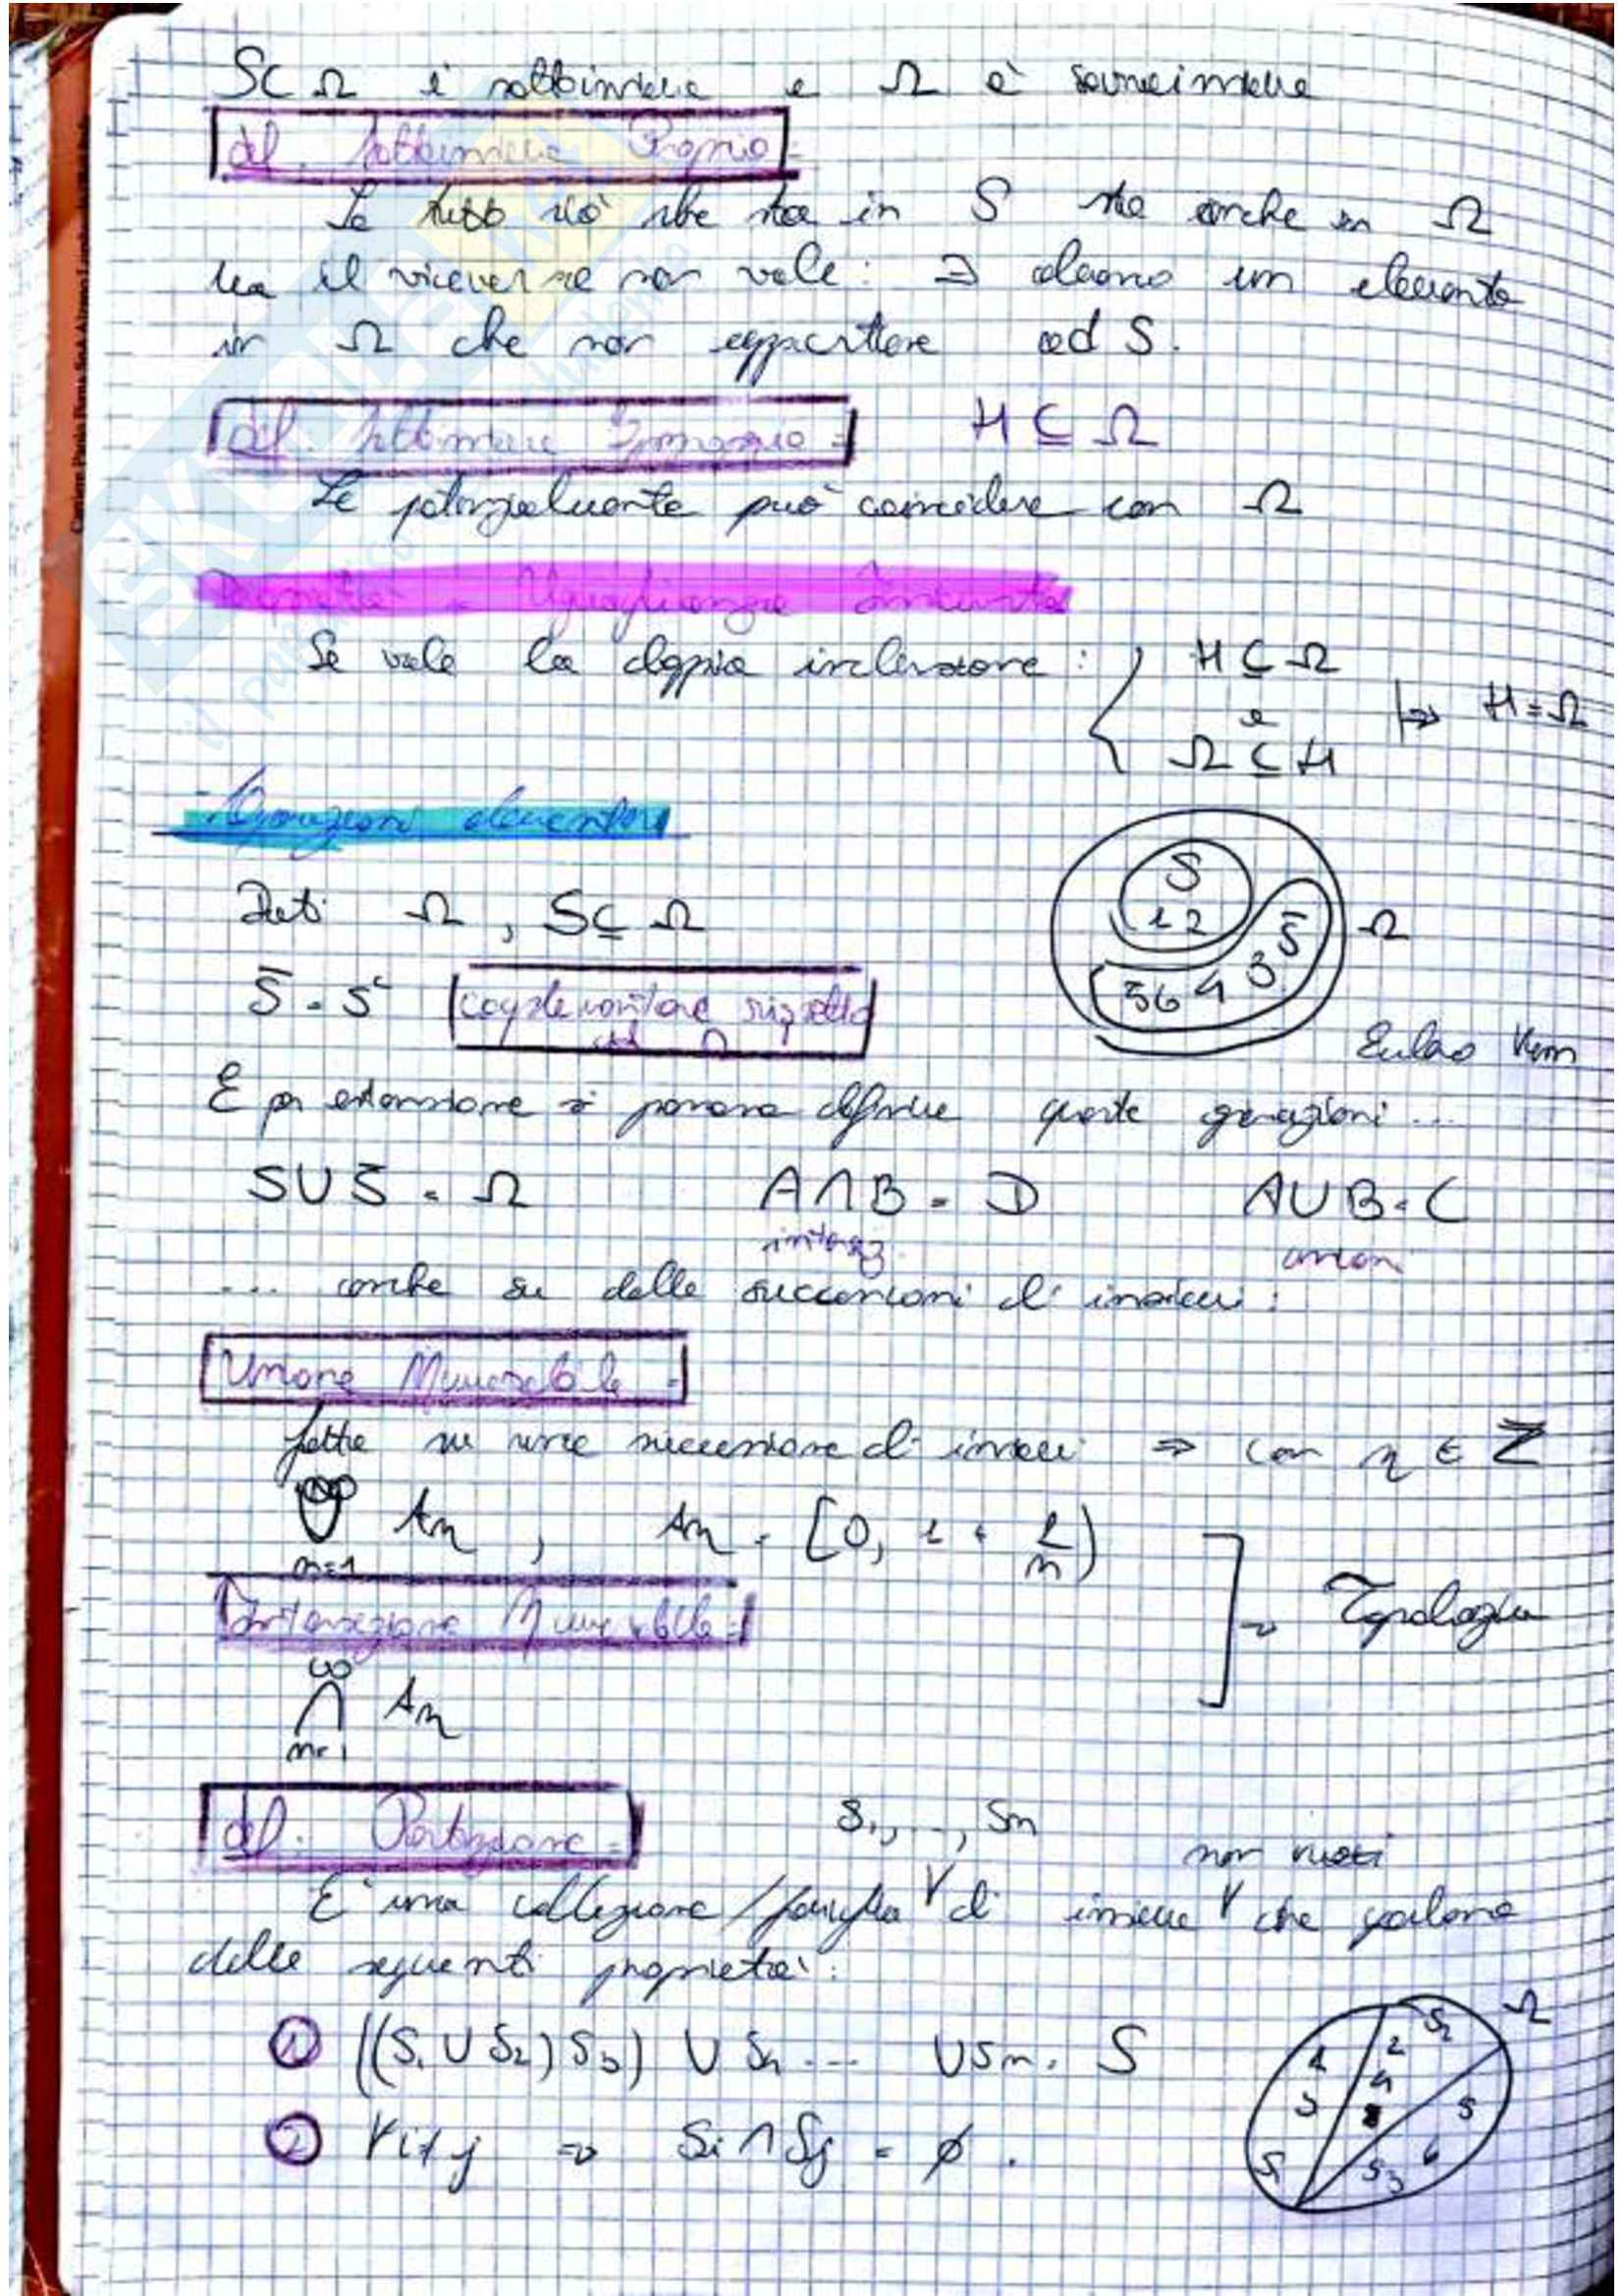 S⊂Ω è sottoinsieme e Ω è sovrainsieme
def. Sottoinsieme Proprio =
Se tutto ciò che sta in S sta anche in Ω
ma il viceversa non vale: ∃ almeno un elemento
in Ω che non appartiene ad S.
def. Sottoinsieme Improprio = H ⊆ Ω
Se potenzialmente può coincidere con Ω
Proprietà Uguaglianza Insiemi
Se vale la doppia inclusione : { H ⊆ Ω
e ⇒ H = Ω
Ω ⊆ H
Operazioni elementari
Dati Ω , S ⊆ Ω
S 1 2 S̄ 3 4 5 6 Ω
S̄ = Sᶜ complementare rispetto
ad Ω
Eulero Venn
E per estensione si possono definire queste operazioni ...
S ∪ S̄ = Ω A ∩ B = D A ∪ B = C
intersez. unioni
... anche su delle successioni di insiemi :
Unione Numerabile =
fatta su una successione di insiemi ⇒ con n ∈ Z
∞ ⋃ n=1 An , An = [0, 1 + 1/n)
Intersezione Numerabile =
→ Topologia
∞ ⋂ n=1 An
def. Partizione = S₁, ..., Sn
non vuoti
È una collezione / famiglia di insiemi che godono
delle seguenti proprietà :
① ((S₁ ∪ S₂) S₃) ∪ S₄ .... ∪ Sn = S
② ∀ i ≠ j ⇒ Si ∩ Sj = ∅ .
S₁ S₂ 2 4 S₃ 5 6 Ω